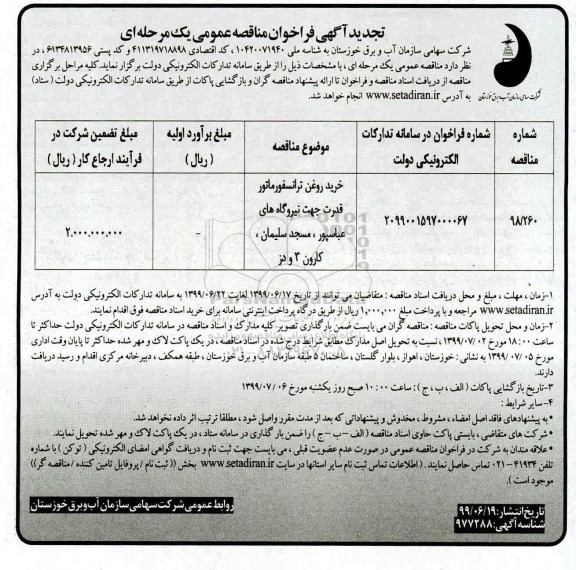 تجدید آگهی فراخوان مناقصه عمومی یک مرحله ای
شرکت سهامی سازمان آب و برق خوزستان به شناسه ملی ۱۰۴۲۰۰۷۱۹۴۰ ، کد اقتصادی ۴۱۱۳۱۹۷۱۸۸۹۸ و کد پستی ۶۱۳۴۸۱۳۹۵۶ ، در
نظر دارد مناقصه عمومی یک مرحله ای ، با مشخصات ذیل را از طریق سامانه تدارکات الکترونیکی دولت برگزار نماید. کلیه مراحل برگزاری
مناقصه از دریافت اسناد مناقصه و فراخوان تا ارائه پیشنهاد مناقصه گران و بازگشایی پاکات از طریق سامانه تدارکات الکترونیکی دولت ( ستاد )
به آدرس www.setadiran.ir انجام خواهد شد.
شرکت سهامی سازمان آب و برق خوزستان
شماره مناقصه
شماره فراخوان در سامانه تدارکات الکترونیکی دولت
موضوع مناقصه
مبلغ برآورد اولیه ( ریال )
مبلغ تضمین شرکت در فرآیند ارجاع کار ( ریال )
۹۸/۲۶۰
۲۰۹۹۰۰۱۵۹۷۰۰۰۰۶۷
خرید روغن ترانسفورماتور
قدرت جهت نیروگاه های
عباسپور ، مسجد سلیمان ،
کارون ۳ و دز
-
۲.۰۰۰.۰۰۰.۰۰۰
۱-زمان ، مهلت ، مبلغ و محل دریافت اسناد مناقصه : متقاضیان می توانند از تاریخ ۱۳۹۹/۰۶/۱۷ لغایت ۱۳۹۹/۰۶/۲۲ به سامانه تدارکات الکترونیکی دولت به آدرس
www.setadiran.ir مراجعه و با پرداخت مبلغ ۱,۰۰۰,۰۰۰ ریال از طریق درگاه پرداخت اینترنتی سامانه برای خرید اسناد مناقصه فوق اقدام نمایند.
۲-زمان و محل تحویل پاکات مناقصه : مناقصه گران می بایست ضمن بارگذاری تصویر کلیه مدارک و اسناد مناقصه در سامانه تدارکات الکترونیکی دولت حداکثر تا
ساعت ۱۸:۰۰ مورخ ۱۳۹۹/۰۷/۰۲ ، نسبت به تحویل اصل مدارک مطابق شرایط درج شده در اسناد مناقصه ، در یک پاکت لاک و مهر شده حداکثر تا پایان وقت اداری
مورخ ۱۳۹۹/۰۷/۰۵ به نشانی : خوزستان ، اهواز ، بلوار گلستان ، ساختمان ۵ طبقه سازمان آب و برق خوزستان ، طبقه همکف ، دبیرخانه مرکزی اقدام و رسید دریافت
دارند.
۳-تاریخ بازگشایی پاکات ( الف ، ب ، ج ) : ساعت ۱۰:۰۰ صبح روز یکشنبه مورخ ۱۳۹۹/۰۷/۰۶
۴-سایر شرایط :
• به پیشنهادهای فاقد امضاء ، مشروط ، مخدوش و پیشنهاداتی که بعد از مدت مقرر واصل شود ، مطلقا ترتیب اثر داده نخواهد شد.
• شرکت های متقاضی ، بایستی پاکت حاوی اسناد مناقصه ( الف -ب -ج ) را ضمن بارگذاری در سامانه ستاد ، در یک پاکت لاک و مهر شده تحویل نمایند.
• علاقه مندان به شرکت در فراخوان مناقصه عمومی در صورت عدم عضویت قبلی ، می بایست جهت ثبت نام و دریافت گواهی امضای الکترونیکی ( توکن ) با شماره
تلفن ۴۱۹۳۴-۰۲۱ تماس حاصل نمایند. ( اطلاعات تماس ثبت نام سایر استانها در سایت www.setadiran.ir بخش (( ثبت نام / پروفایل تامین کننده / مناقصه گر))
موجود است ).
تاریخ انتشار: ۹۹/۰۶/۱۹
شناسه آگهی: ۹۷۷۲۸۸
روابط عمومی شرکت سهامی سازمان آب و برق خوزستان